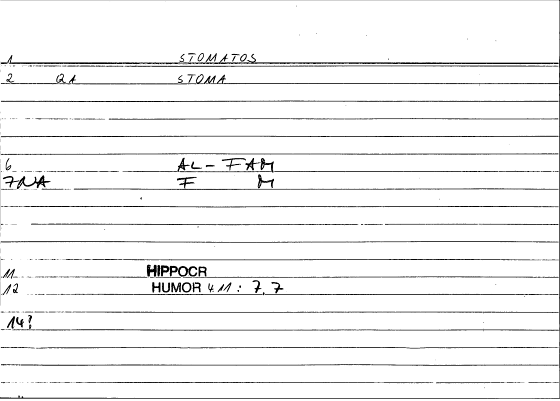 1 STOMATOS
2 QA STOMA
6 AL - FAM
7NA F M
11 HIPPOCR
12 HUMOR 411: 7,7
14?